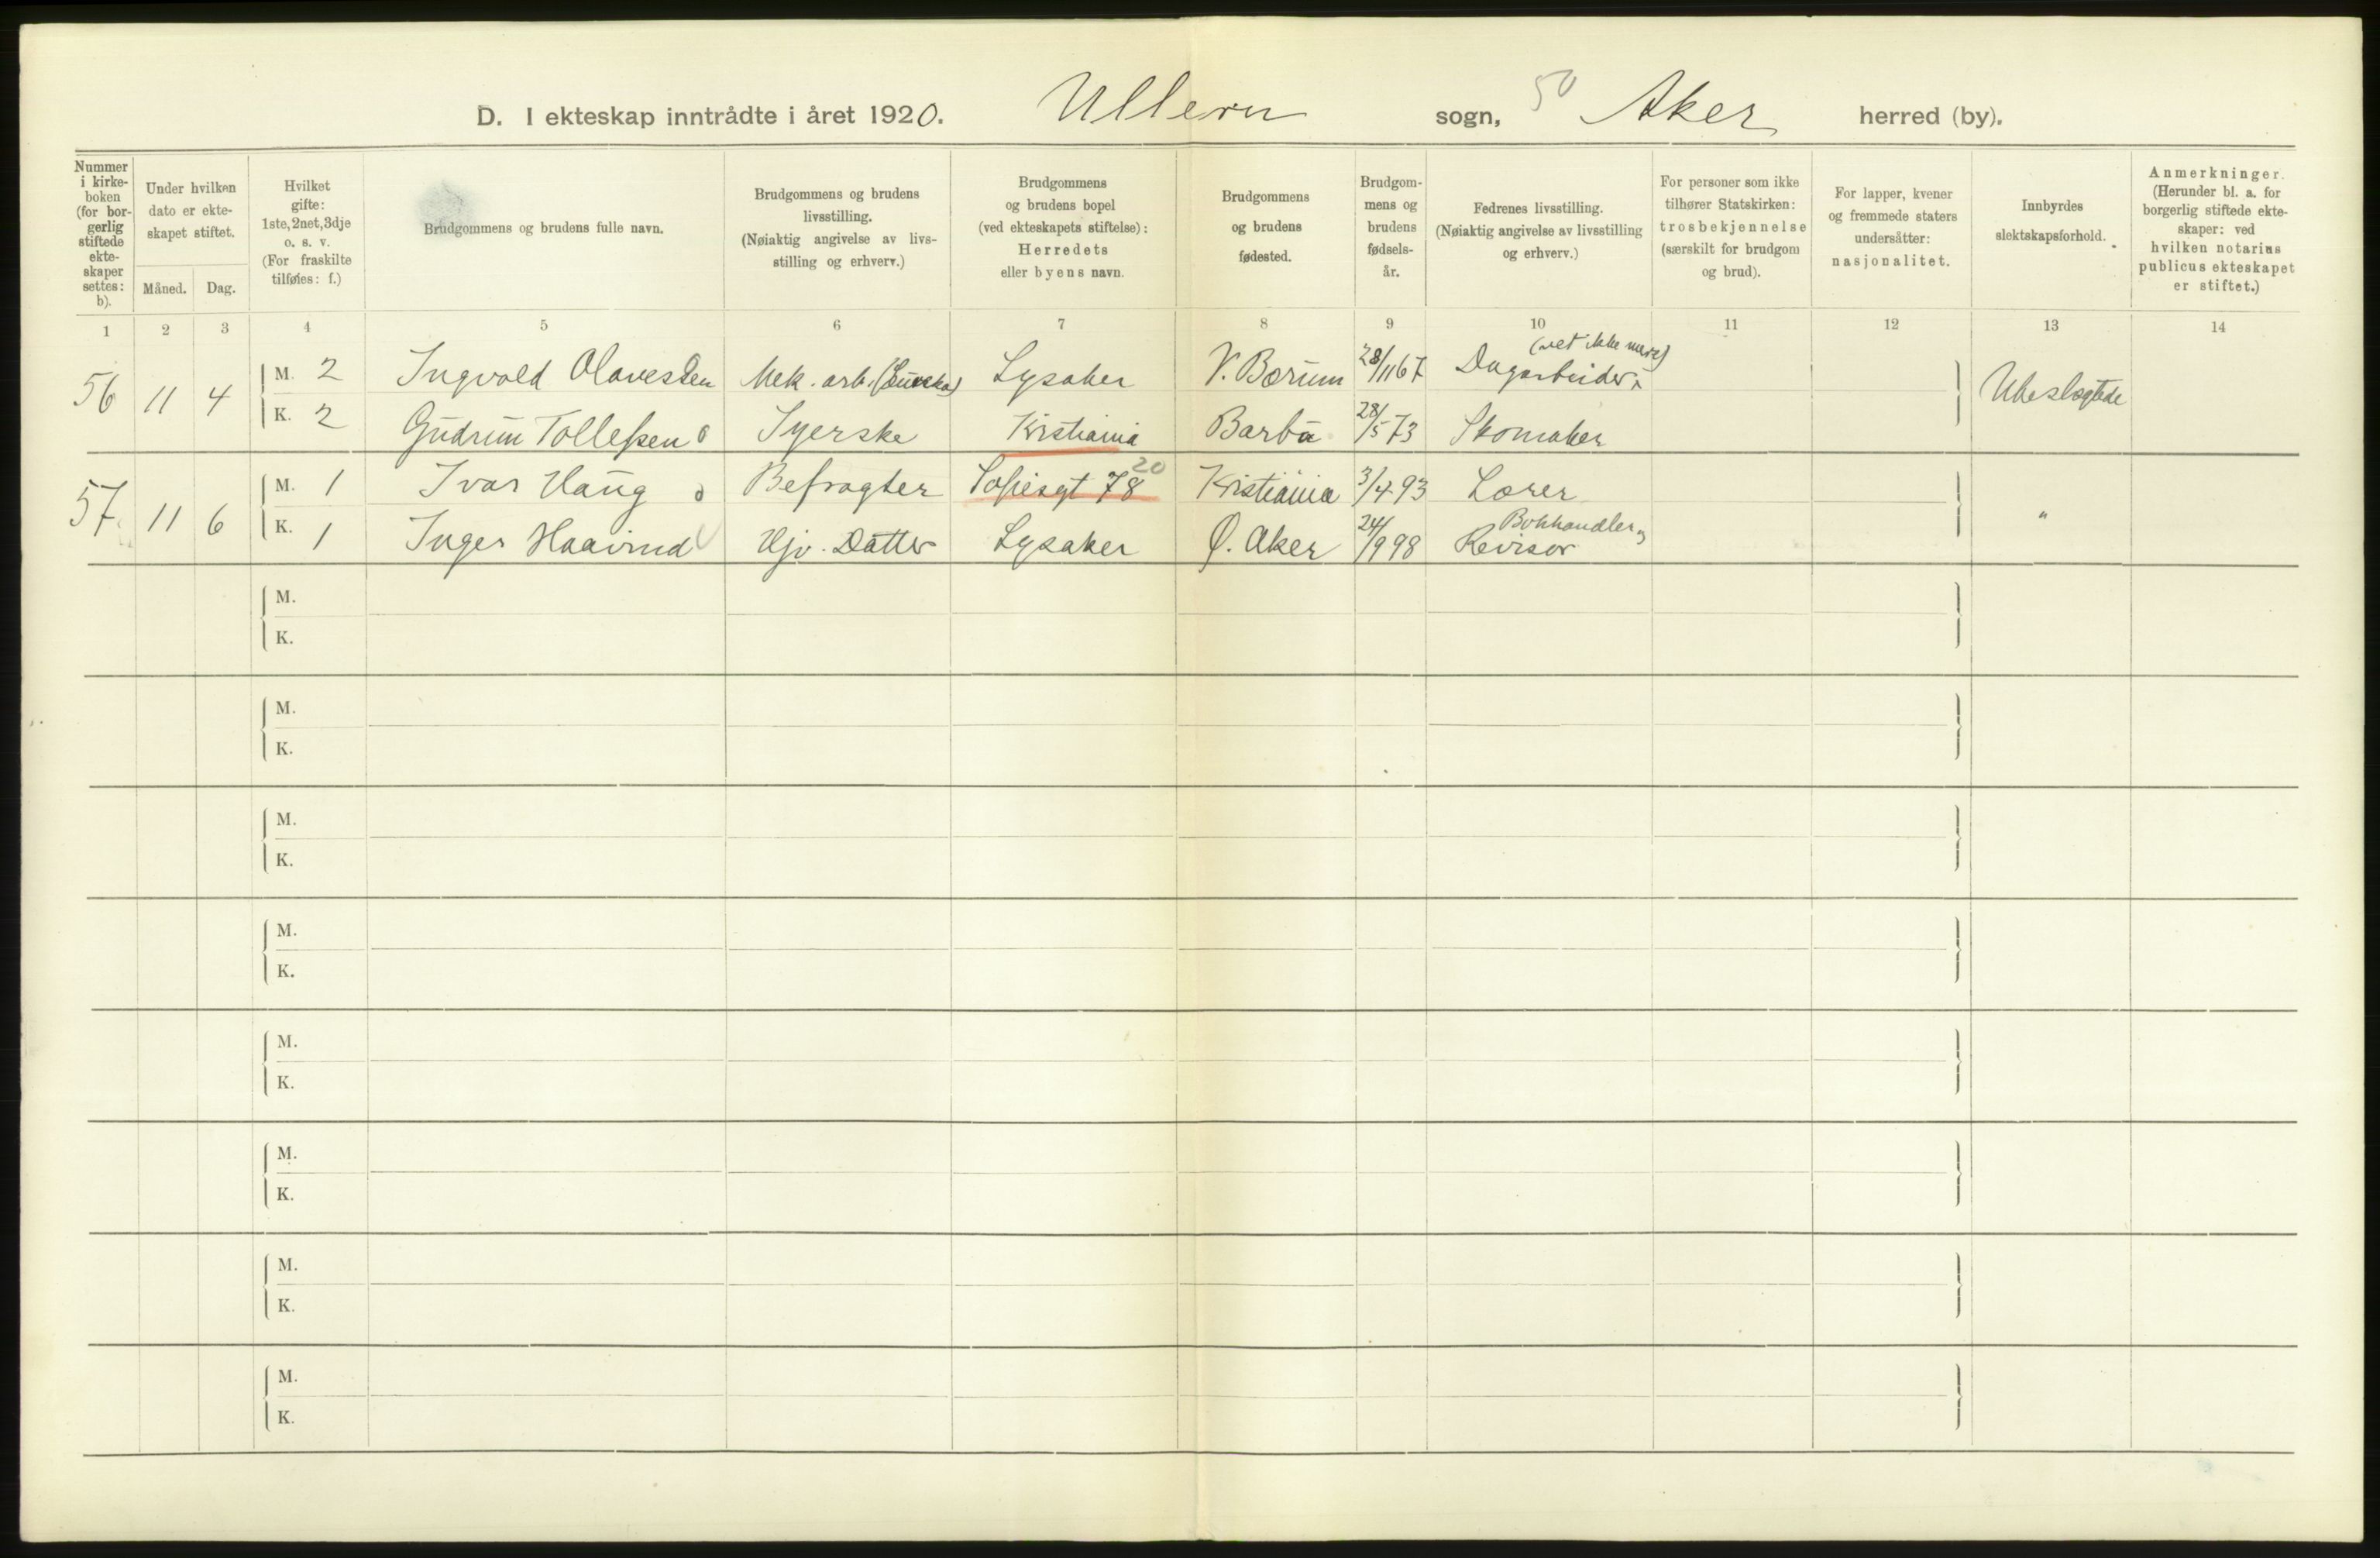 D. I ekteskap inntrådte i året 1920. Ullern sogn, 50 Aker herred (by).
Nummer i kirkeboken (for borgerlig stiftede ekteskaper settes: b).
Under hvilken dato er ekteskapet stiftet.
Måned. Dag.
Hvilket gifte: 1ste, 2net, 3dje o. s. v. (For fraskilte tilføies: f.)
Brudgommens og brudens fulle navn.
Brudgommens og brudens livsstilling. (Nøiaktig angivelse av livsstilling og erhverv.)
Brudgommens og brudens bopel (ved ekteskapets stiftelse): Herredets eller byens navn.
Brudgommens og brudens fødested.
Brudgommens og brudens fødselsår.
Fedrenes livsstilling. (Nøiaktig angivelse av livsstilling og erhverv.)
For personer som ikke tilhører Statskirken: trosbekjennelse (særskilt for brudgom og brud).
For lapper, kvener og fremmede staters undersåtter: nasjonalitet.
Innbyrdes slektskapsforhold.
Anmerkninger. (Herunder bl. a. for borgerlig stiftede ekteskaper: ved hvilken notarius publicus ekteskapet er stiftet.)
1 2 3 4 5 6 7 8 9 10 11 12 13 14
(vet ikke mere)
56 11 4 M. 2 Ingvald Olavesen Mek. arb. (Eureka) Lysaker V. Bærum 28/11 67 Dagarbeider Ubeslegtede
K. 2 Gudrun Tollefsen Syerske Kristiania Barbu 28/5 73 Skomaker
20
57. 11 6 M. 1 Ivar Haug Befragter Sofiesgt 78 Kristiania 3/4 93 Lærer "
Bokhandler og
K. 1 Inger Haavind Hjv. Datter Lysaker Ø. Aker 24/9 98 Revisor
M.
K.
M.
K.
M.
K.
M.
K.
M.
K.
M.
K.
M.
K.
M.
K.